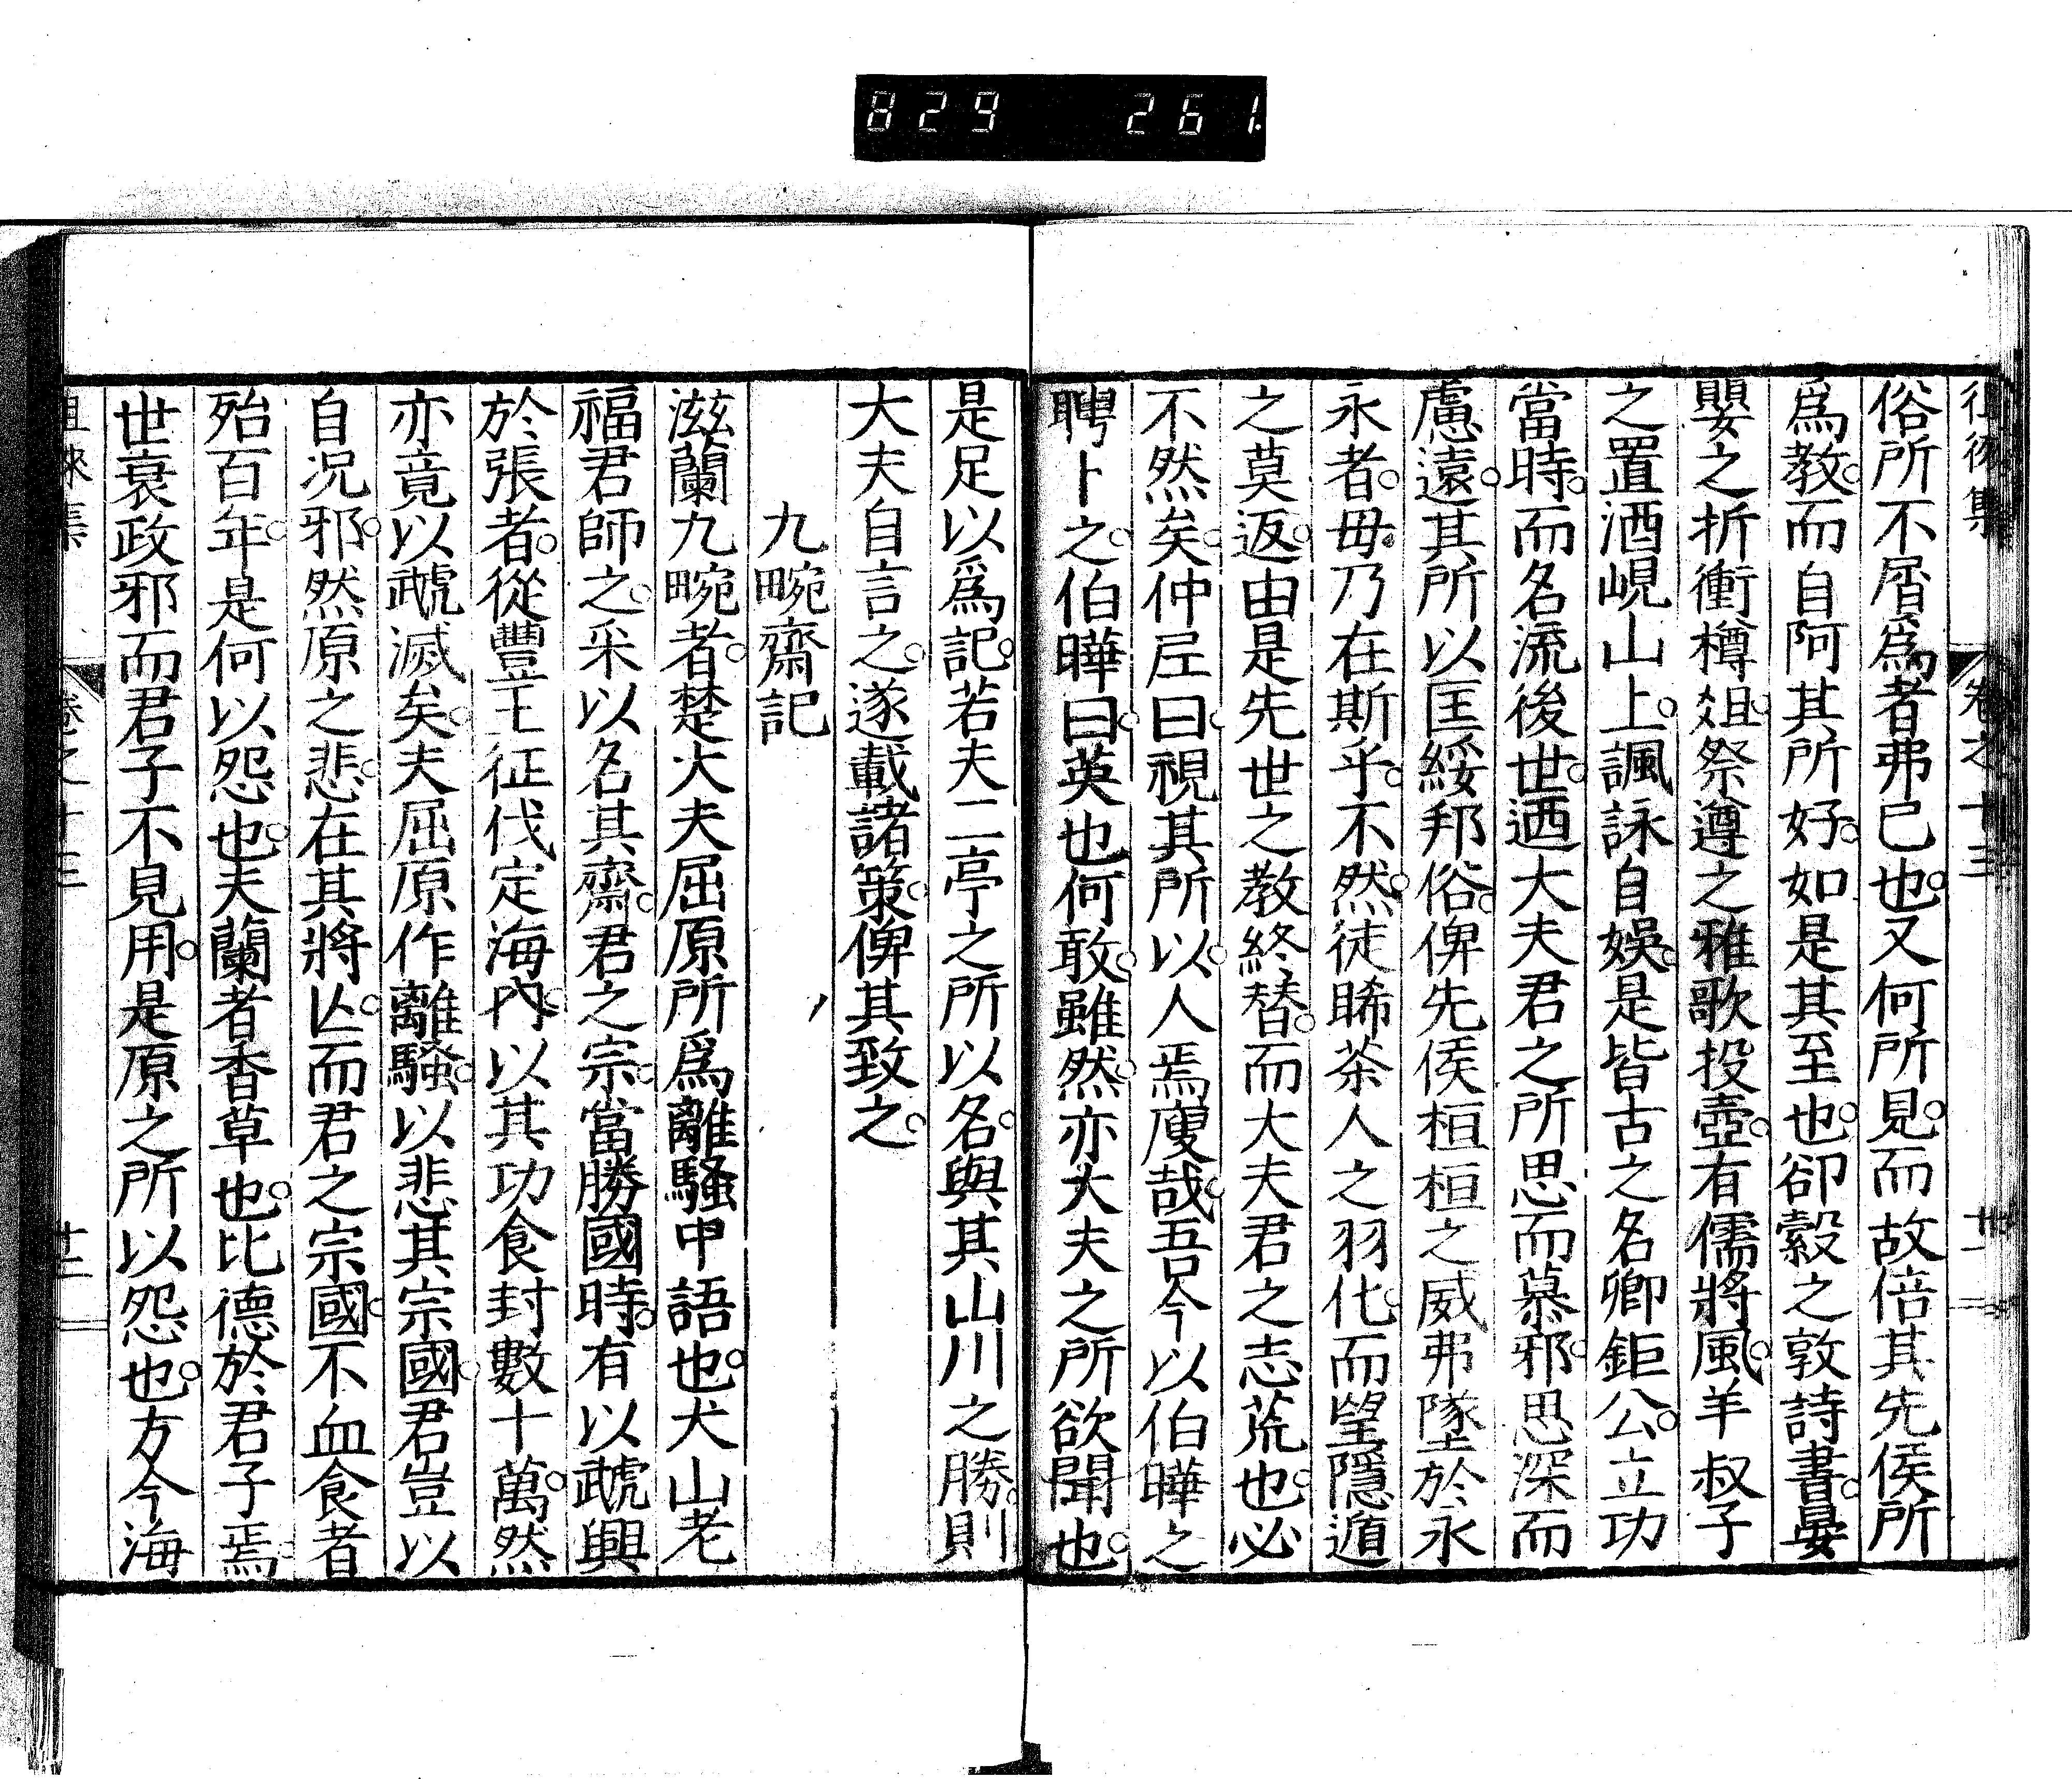 829 261.
徂徠集 卷之十三 廿一
俗所不屑爲者弗已也又何所見而故倍其先侯所
爲教而自阿其所好如是其至也卻縠之敦詩書晏
嬰之折衝樽俎祭遵之雅歌投壺有儒將風羊叔子
之置酒峴山上諷詠自娛是皆古之名卿鉅公立功
當時而名流後世迺大夫君之所思而慕邪思深而
慮遠其所以匡綏邦俗俾先侯桓桓之威弗墜於永
永者毋乃在斯乎不然徒睎茶人之羽化而望隱遁
之莫返由是先世之教終替而大夫君之志荒也必
不然矣仲尼曰視其所以人焉廋哉吾今以伯曄之
聘卜之伯曄曰英也何敢雖然亦大夫之所欲聞也
是足以爲記若夫二亭之所以名與其山川之勝則
大夫自言之遂載諸策俾其致之
九畹齋記
滋蘭九畹者楚大夫屈原所爲離騷中語也犬山老
福君師之采以名其齋君之宗當勝國時有以虣興
於張者從豐王征伐定海內以其功食封數十萬然
亦竟以虣滅矣夫屈原作離騷以悲其宗國君豈以
自況邪然原之悲在其將亾而君之宗國不血食者
殆百年是何以怨也夫蘭者香草也比德於君子焉
世衰政邪而君子不見用是原之所以怨也方今海
徂徠集 卷之十三 廿二